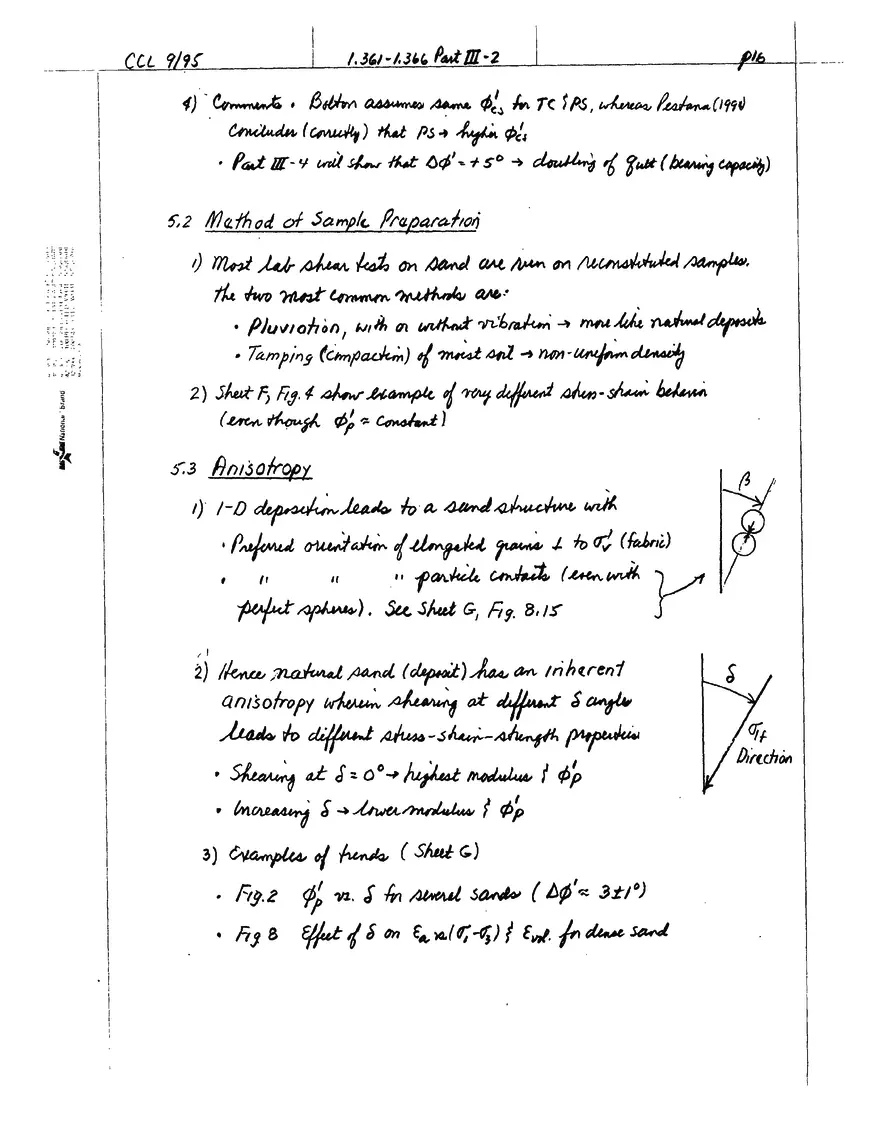 CCL 9/95 1.361-1.366 Part III-2 p16
4) Comments • Bolton assumes same ϕ'cs for TC & PS, whereas Pestana (1994)
Concludes (correctly) that PS → higher ϕ'cs
• Part III-4 will show that Δϕ' = +5° → doubling of qult (bearing capacity)
5.2 Method of Sample Preparation
1) Most lab shear tests on sand are run on reconstituted samples.
The two most common methods are:
• Pluviation, with or without vibration → more like natural deposits
• Tamping (Compaction) of moist soil → non-uniform density
2) Sheet F, Fig. 4 show example of very different stress-strain behavior
(even though ϕ'p ≈ constant)
5.3 Anisotropy
1) 1-D deposition leads to a sand structure with
• Preferred orientation of elongated grains ⊥ to σ'v (fabric)
• " " " particle contacts (even with
perfect spheres). See Sheet G, Fig. 8.15
β
2) Hence, natural sand (deposit) has an inherent
anisotropy wherein shearing at different δ angles
leads to different stress-strain-strength properties
• Shearing at δ = 0° → highest modulus & ϕ'p
• Increasing δ → lower modulus & ϕ'p
δ
σ1f
Direction
3) Examples of trends (Sheet G)
• Fig. 2 ϕ'p vs. δ for several sands (Δϕ' ≈ 3±1°)
• Fig 8 Effect of δ on εa vs (σ1-σ3) & εvol. for dense sand
National Brand